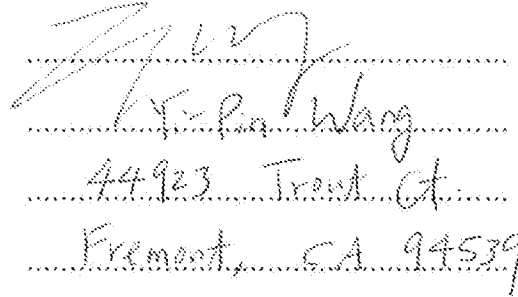 Yi-Pin Wang
44923 Trout Ct.
Fremont, CA 94539